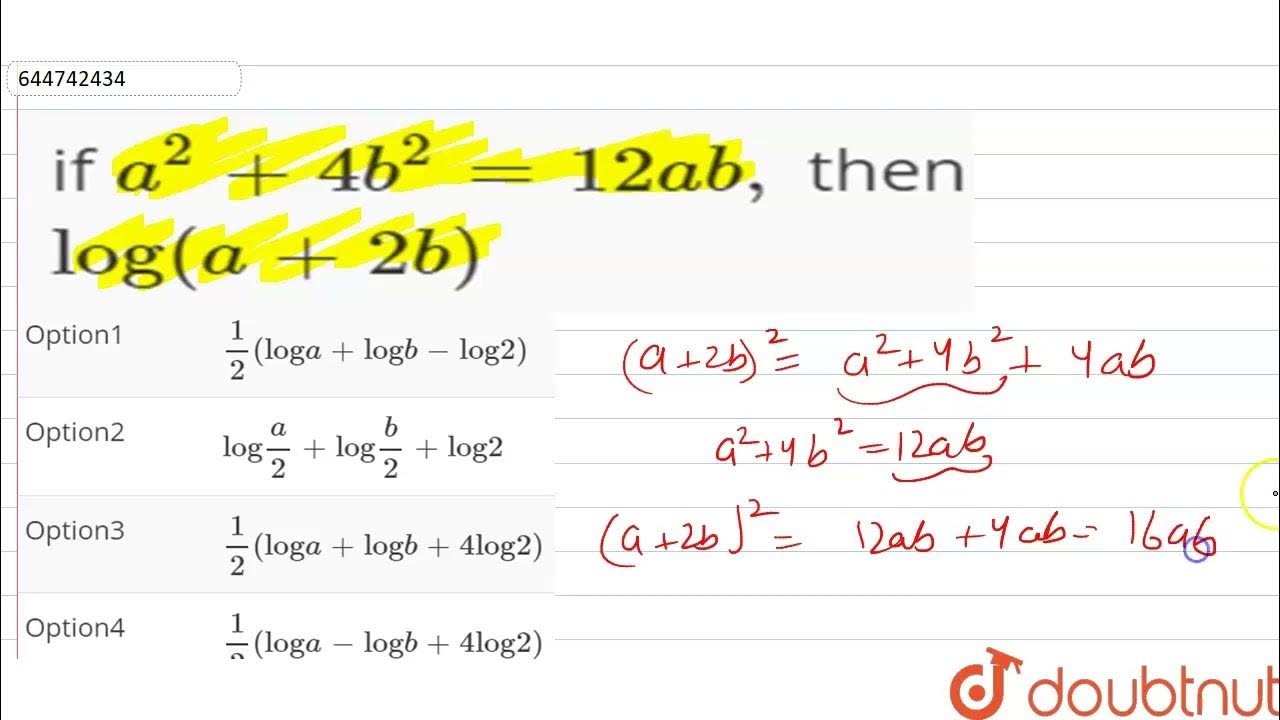 644742434
if a² + 4b² = 12ab, then
log(a + 2b)
Option1 1/2 (loga + logb − log2)
Option2 log a/2 + log b/2 + log2
Option3 1/2 (loga + logb + 4log2)
Option4 1/2 (loga − logb + 4log2)
(a+2b)² = a²+4b²+ 4ab
a²+4b² = 12ab
(a+2b)² = 12ab + 4ab = 16ab
doubtnut